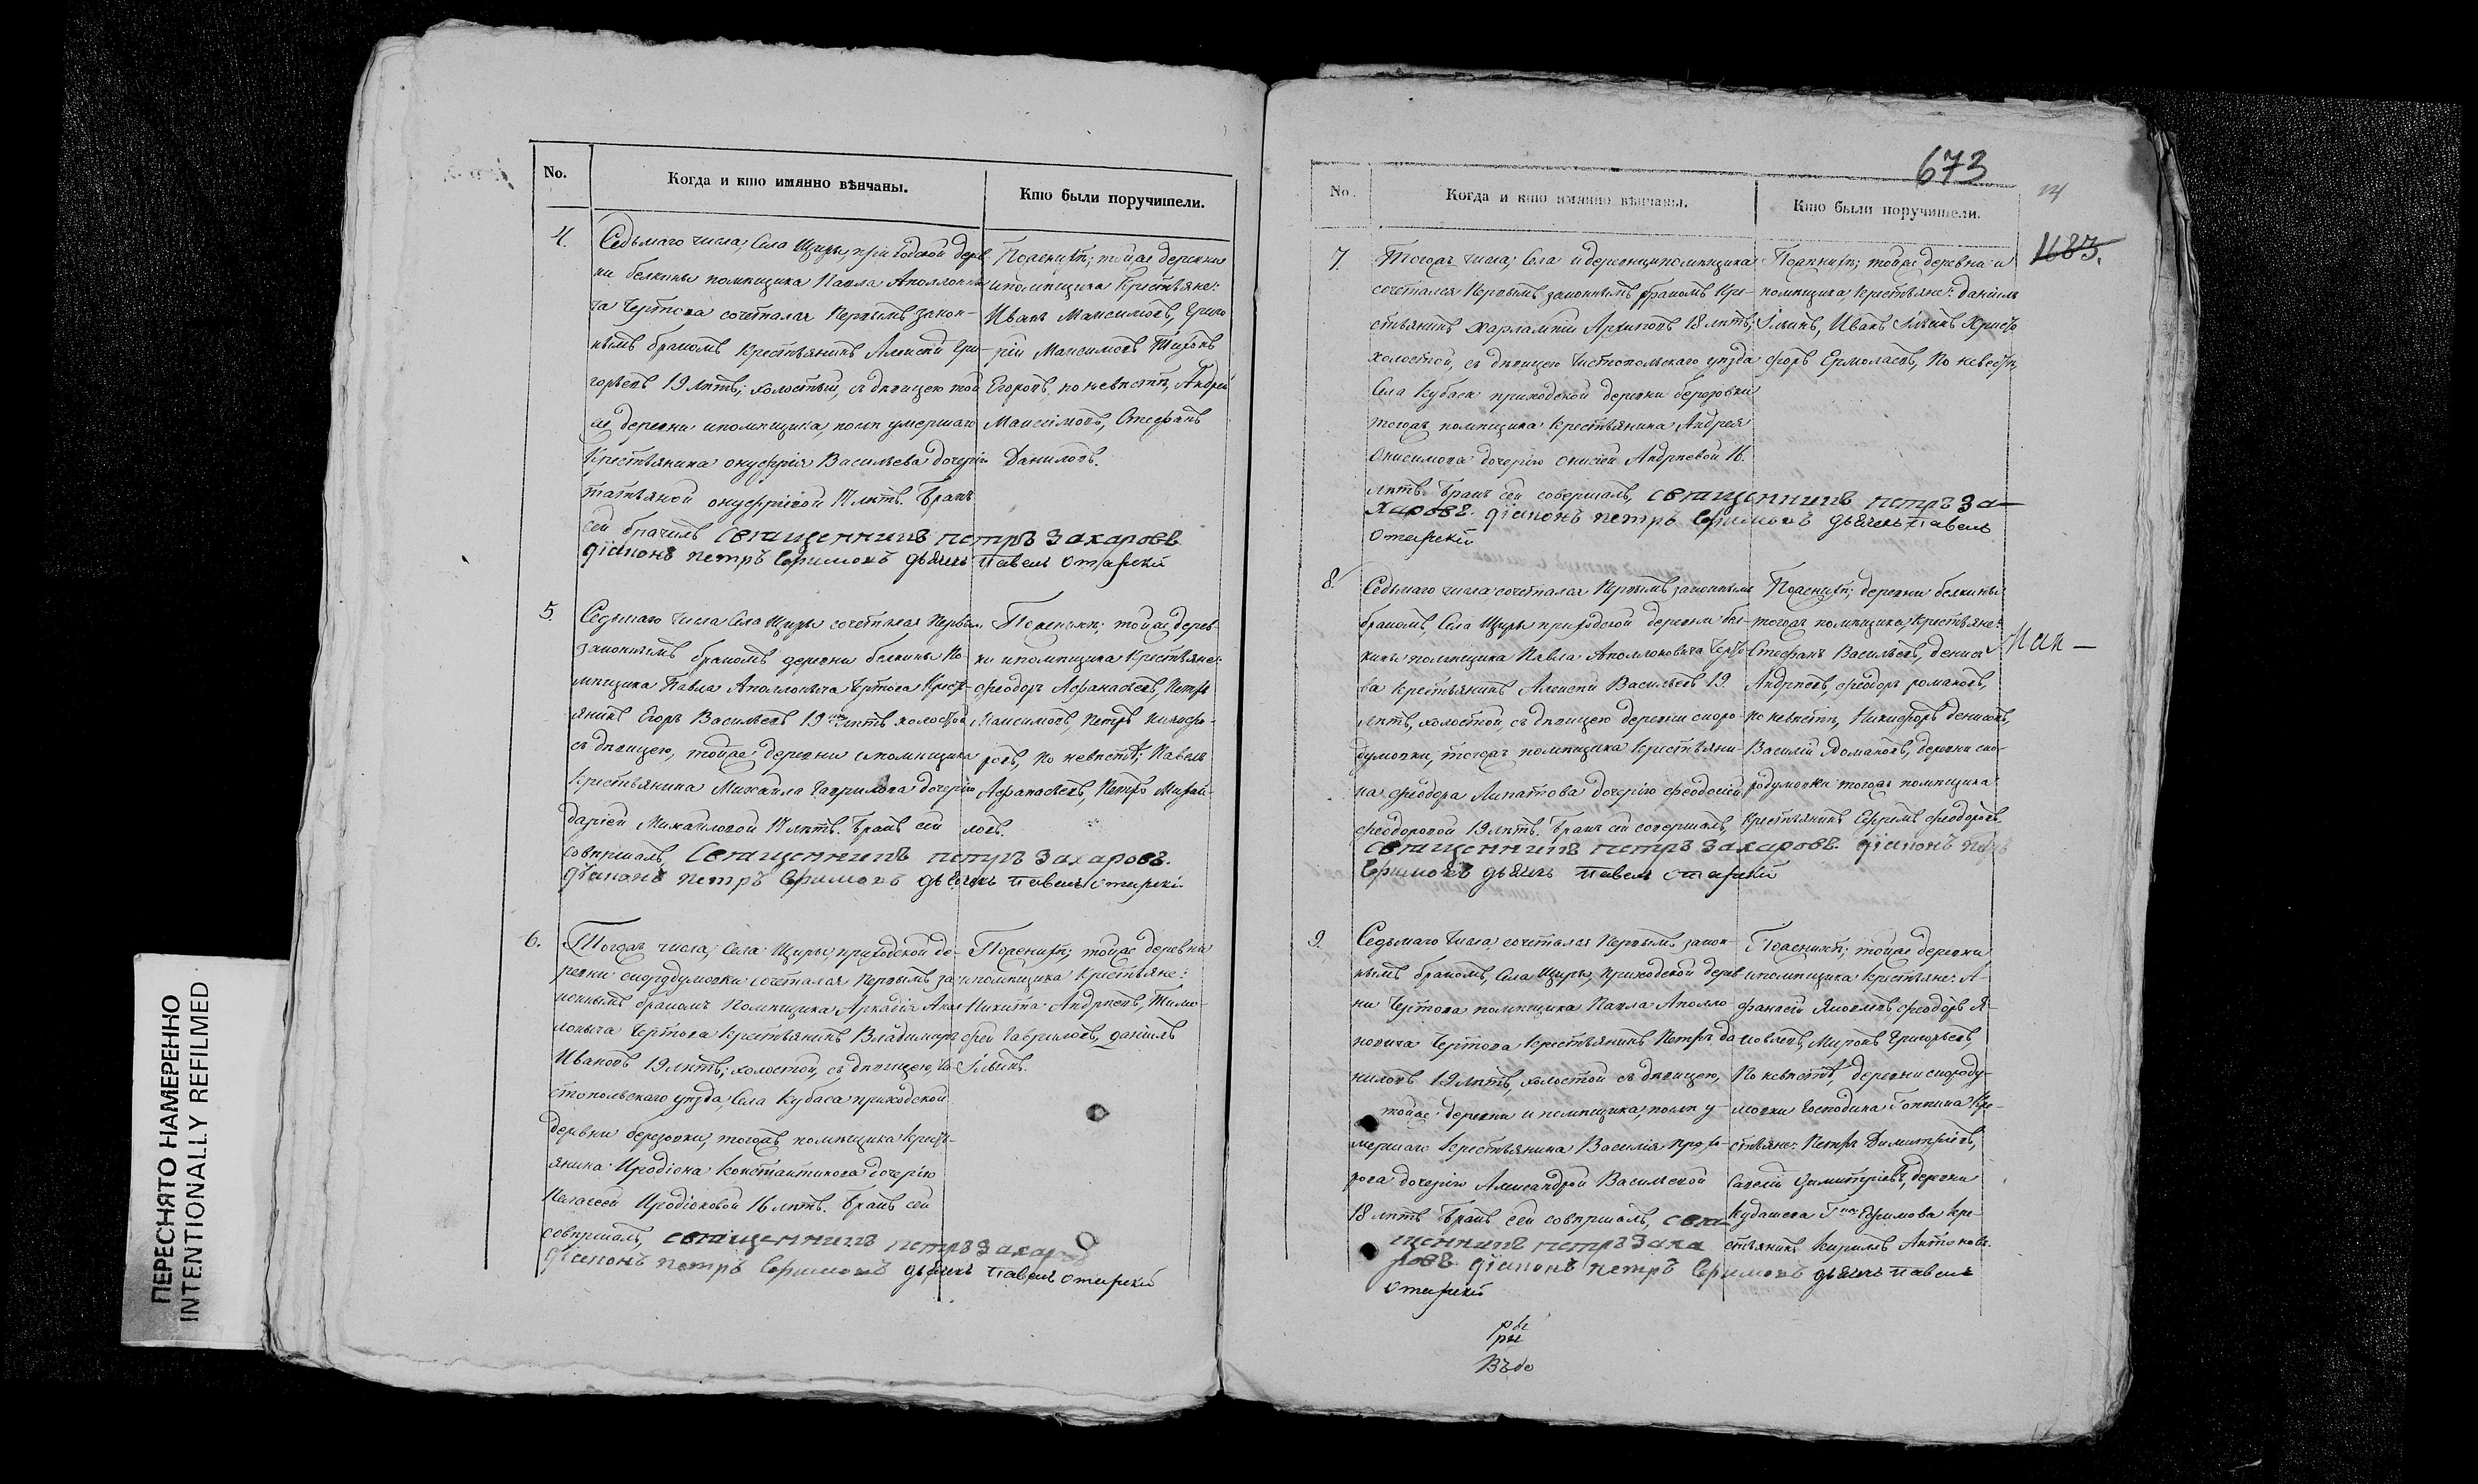 No.
Когда и кто имянно вѣнчаны.
Кто были поручители.
4.
Седьмаго числа, Села Щиры, приходской дерев
ни белкины помѣщика Павла Аполлонови
ча Чертова сочетался первымъ закон-
нымъ бракомъ крестьянинъ Алексѣй Гри-
горьевъ 19 лѣтъ; холостый, съ дѣвицею той
же деревни и помѣщика, послѣ умершаго
крестьянина онуфрія Васильева дочерію
татьяной онуфріевой 17 лѣтъ. Бракъ
сей брачилъ священникъ петръ Захаровъ
діаконъ петръ Ефимовъ дьячекъ павелъ
По женихѣ; тойже деревни
и помѣщика Крестьяне:
Иванъ Максимовъ, Григо
рій Максимовъ Тихонъ
Егоровъ, по невѣстѣ, Андрей
Максимовъ, Стефанъ
Даниловъ.
5.
Седьмаго числа Села Щиры сочетался первым
законнымъ бракомъ деревни белкины по-
мѣщика Павла Аполлоновича Чертова Кресть-
янинъ Егоръ Васильевъ 19 лѣтъ холостой
съ дѣвицею, тойже деревни и помѣщика
крестьянина Михаила Гаврилова дочерію
даріей Михайловой 17 лѣтъ. Бракъ сей
совершалъ, Священникъ петръ Захаровъ.
діаконъ петръ Ефимовъ дьячекъ павелъ
По женихѣ; тойже дерев-
ни и помѣщика крестьяне:
феодоръ Афанасьевъ, Петръ
Максимовъ, Петръ Никифо-
ровъ, по невѣстѣ; Павелъ
Афанасьевъ, Петръ Михай-
ловъ.
6.
Тогожъ числа, Села Щиры приходской де-
ревни скородумовки сочетался первымъ за
коннымъ бракомъ помѣщика Аркадія Апол
лоныча Чертова крестьянинъ Владимиръ
Ивановъ 19 лѣтъ; холостой, съ дѣвицею, Чи-
стопольскаго уѣзда, Села Кубаса приходской
деревни березовки, тогожъ помѣщика кресть-
янина Иродіона Константинова дочерію
Пелагеей Иродіоновой 16 лѣтъ. Бракъ сей
совершалъ, священникъ петръ Захаров
діаконъ петръ Ефимовъ дьячекъ павелъ
По женихѣ; тойже деревни
и помѣщика Крестьяне:
Никита Андреевъ, Тимо-
фей Гавриловъ, даніилъ
Ильинъ.
673
No.
Когда и кто имянно вѣнчаны.
Кто были поручители.
1683.
7.
Тогожъ числа, Села и деревни и помѣщика
сочетался первымъ законнымъ бракомъ кре-
стьянинъ Харлампій Архиповъ 18 лѣтъ;
холостой, съ дѣвицею Чистопольскаго уѣзда
Села Кубаса приходской деревни березовки
тогожъ помѣщика крестьянина Андрея
Онисимова дочерію Андреевой 16.
лѣтъ. Бракъ сей совершалъ, священникъ петръ За-
харовъ. діаконъ петръ Ефимовъ дьячекъ павелъ
По женихѣ; тойже деревни и
помѣщика, крестьяне: даніилъ
Ильинъ, Иванъ Ильинъ Христо
форъ Ермолаевъ, по невестѣ,
8.
Седьмаго числа сочетался первымъ законнымъ
бракомъ, Села Щиры приходской деревни бел-
кины помѣщика Павла Аполлоновича Черто-
ва крестьянинъ Алексѣй Васильевъ 19.
лѣтъ, холостой, съ дѣвицею деревни скоро-
думовки, тогожъ помѣщика крестьяни-
на феодора Липатова дочерію феодосіей
феодоровой 19 лѣтъ. Бракъ сей совершалъ,
священникъ петръ Захаровъ. діаконъ петръ
Ефимовъ дьячекъ павелъ
По женихѣ; деревни белкины
тогожъ помѣщика, крестьяне:
Стефанъ Васильевъ, денисъ
Андреевъ, феодоръ романовъ,
по невѣстѣ, Никифоръ денисовъ,
Василій Романовъ, деревни ско-
родумовки тогожъ помѣщика
крестьянинъ Ефремъ феодоровъ
9.
Седьмаго числа сочетался первымъ закон-
нымъ бракомъ, Села Щиры, приходской дерев
ни Чертова помѣщика Павла Аполло
новича Чертова крестьянинъ Петръ да
ниловъ 19 лѣтъ, холостой съ дѣвицею,
тойже деревни и помѣщика, послѣ у-
мершаго крестьянина Василія прохо-
рова дочерію Александрой Васильевой
18 лѣтъ Бракъ сей совершалъ, свя-
щенникъ петръ Заха
ровъ діаконъ петръ Ефимовъ дьячекъ павелъ
По женихѣ; тойже деревни
и помѣщика крестьяне: А-
фанасій Яковлевъ феодоръ Я-
ковлевъ, Миронъ Григорьевъ,
По невѣстѣ, деревни скороду-
мовки господина кре-
стьяне: Петръ Димитріевъ,
Савелій димитріевъ, деревни
Кудашева Ефимова кре-
стьянинъ Кирилъ Антоновъ.
ПЕРЕСНЯТО НАМЕРЕННО
INTENTIONALLY REFILMED